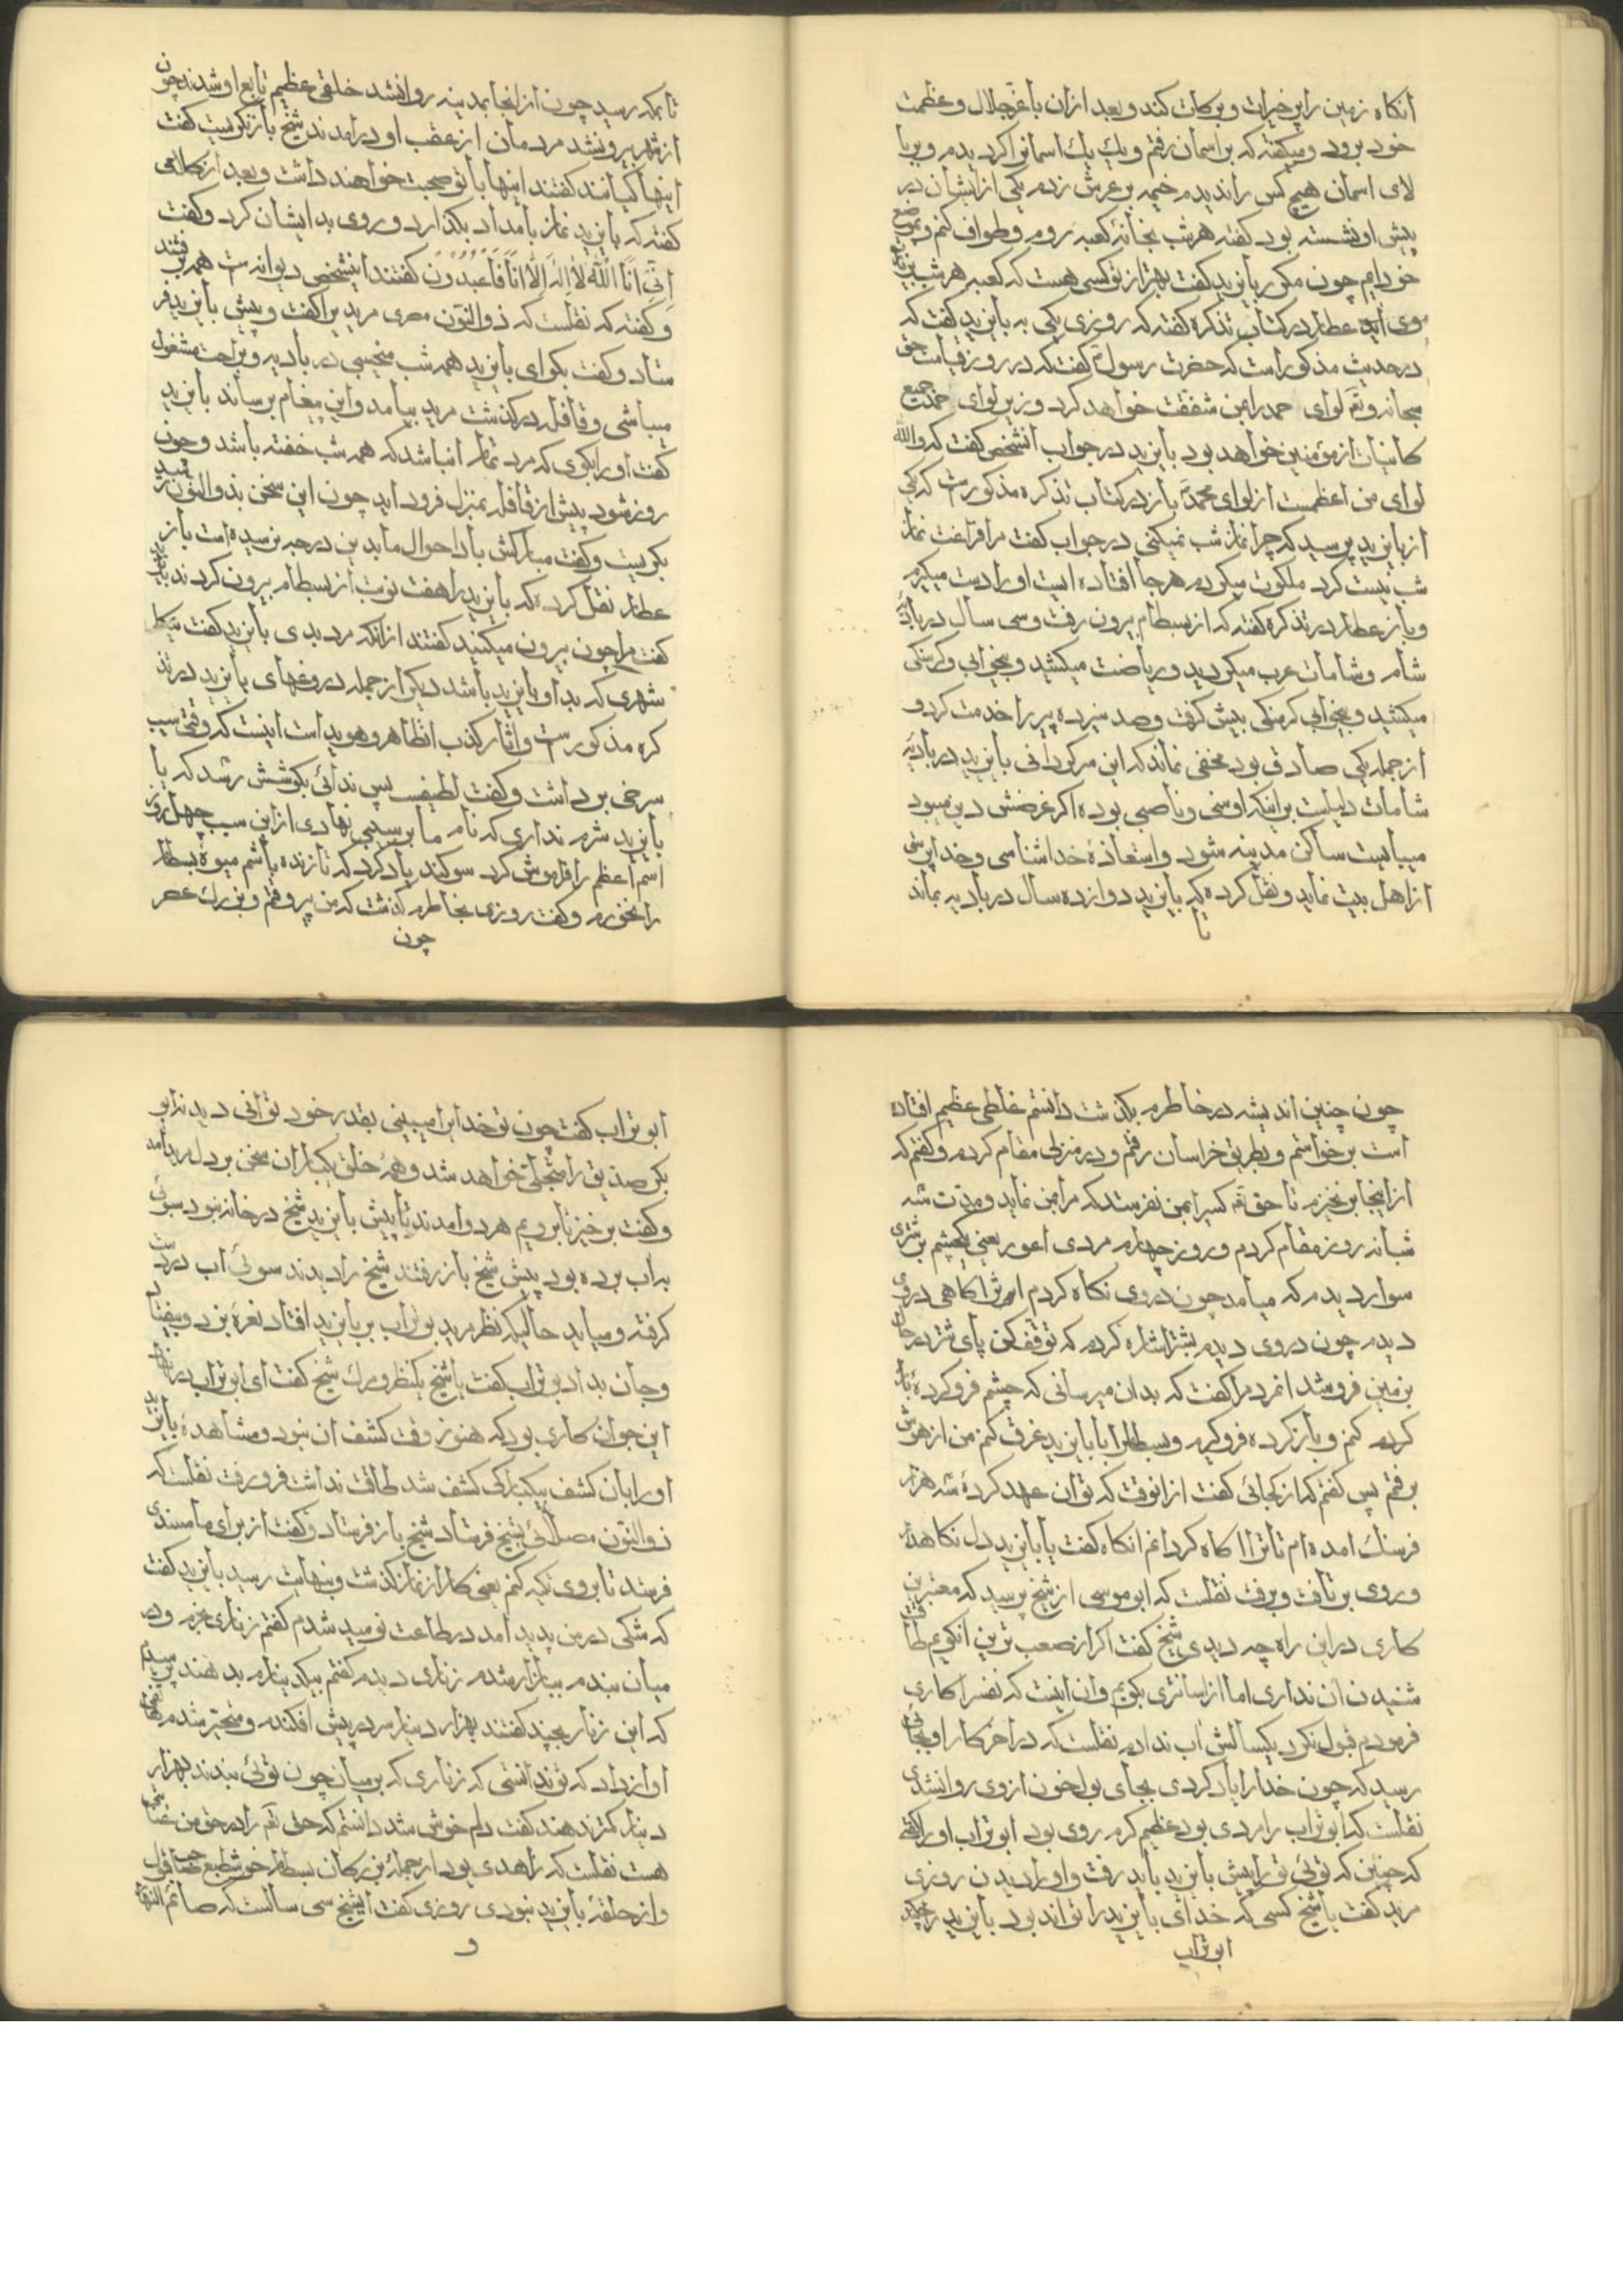 آنکاه زمین را پر خیرات و برکات کند و بعد ازان با عز جلال و عظمت
خود برود و میکفته که بر اسمان رفتم و یک یک اسمانرا کردیدم و بر با
لای اسمان هیچ کس را ندیدم خیمه بر عرش زدم یکی از ایشان در
پیش او نشسته بود کفته هر شب بخانهٔ کعبه روم و طواف کنم و بموضع
خود ایم چون مکرر بایزید کفت بهتر از تو کسی هست که کعبه هر شب بزیارت
وی اید عطار در کتاب تذکره کفته که روزی یکی به بایزید کفت که
در حدیث مذکور است که حضرت رسول کفت که در روز قیامت حق
سبحانه و تع لوای حمد را بمن شفقت خواهد کرد و زیر لوای حمد جمیع
کاینات از مؤمنین خواهد بود بایزید در جواب انشخص کفت که والله
لوای من اعظمست از لوای محمد باز در کتاب تذکره مذکورست که یکی
از بایزید پرسید که چرا نماز شب نمیکنی در جواب کفت مرا فراغت نماز
شب نیست کرد ملکوت میکردم هر جا افتاده ایست او را دست میکیرم
و باز عطار در تذکره کفته که از بسطام بیرون رفت و سی سال در بادیه
شام و شامات عرب میکردید و ریاضت میکشید و بیخوابی و کرسنکی
میکشید و بیخوابی کرسنکی پیش کرفت و صد سیزده پیر را خدمت کرد و
از جمله یکی صادق بود مخفی نماند که این سرکردانی بایزید در بادیه
شامات دلیلست بر اینکه او سنی و ناصبی بوده اکر غرضش دین میبود
میبایست ساکن مدینه شود و استعاذهٔ خداشناسی و خداپرستی
از اهل بیت نماید و نقل کرده که بایزید دوازده سال در بادیه بماند
تا
تا بمکه رسید چون از انجا بمدینه روانشد خلقی عظیم تابع او شدند چون
از شهر بیرونشد مردمان از عقب او در امدند شیخ باز نکریست کفت
اینها کیانند کفتند اینها با تو صحبت خواهند داشت و بعد از کلامی
کفته که بایزید نماز بامداد بکذارد و روی بد ایشان کرد و کفت
اِنّی اَنَا اللّهُ لا اِلهَ اِلّا اَنَا فَاعبُدُونِ کفتند اینشخص دیوانه ست همه برفتند
و کفته که نقلست که ذوالنون مصری مریدیرا کفت و پیش بایزید فر
ستاد و کفت بکو ای بایزید همه شب میخسبی در بادیه و براحت مشغول
میباشی و قافله درکذشت مرید بیامد و این پیغام برساند بایزید
کفت او را بکوی که مرد تمام انباشد که همه شب خفته باشد و چون
روز شود پیش از قافله بمنزل فرود اید چون این سخن بذوالنون رسید
بکریست و کفت مبارکش باد احوال ما بدین درجه نرسیده است باز
عطار نقل کرده که بایزید را هفت نوبت از بسطام بیرون کردند بایزید
کفت مرا چون بیرون میکنید کفتند از انکه مرد بدی بایزید کفت نیکا
شهری که بد او بایزید باشد دیکر از جمله دروغهای بایزید در تذ
کره مذکورست و اثار کذب انظاهر و هویداست اینست که وقتی سیب
سرخی برداشت و کفت لطیفست پس ندائی بکوشش رسد که یا
بایزید شرم نداری که نام ما بر سیبی نهادی ازاین سبب چهل روز
اسم اعظم را فراموش کرد سوکند یاد کرد که تا زنده باشم میوهٔ بسطام
را نخورم و کفت روزی بخاطرم کذشت که من پیر وقتم و بزرک عصر
چون
چون چنین اندیشه در خاطرم بکذشت دانستم غلطی عظیم افتاده
است برخواستم و بطریق خراسان رفتم و در منزلی مقام کردم و کفتم که
از اینجا برنخیزم تا حق تع کسیرا بمن نفرستد که مرا بمن نماید و مدت سه
شبانه روز مقام کردم و روز چهارم مردی اعور یعنی یکچشم بر شتری
سوار دیدم که میامد چون در وی نکاه کردم اثر اکاهی در وی
دیدم چون در وی دیدم بشتر اشاره کردم که توقف کن پای شتر در حال
بزمین فرو شد انمرد مرا کفت که بدان میرسانی که چشم فرو کرده باز
کرده کنم و باز کرده فرو کیرم و بسطامرا با بایزید غرق کنم من از هوش
برفتم پس کفتم که از کجائی کفت از انوقت که تو ان عهد کردهٔ سه هزار
فرسنک امده ام تا ترا اکاه کردانم انکاه کفت یا بایزید دل نکاهدار
و روی برتافت و برفت نقلست که ابو موسی از شیخ پرسید که معتبرترین
کاری دراین راه چه دیدی شیخ کفت اکر از صعب ترین انکویم طاقت
شنیدن ان نداری اما از اسانتری بکویم و ان اینست که نفسرا کاری
فرمودم قبول نکرد یکسالش اب ندادم نقلست که در اخر کار او بجائی
رسید که چون خدا را یاد کردی بجای بول خون از وی روانشدی
نقلست که ابو تراب را مردی بود عظیم کرم روی بود ابو تراب او را کفته
که چنین که توئی ترا پیش بایزید باید رفت و او را دیدن روزی
مرید کفت یا شیخ کسی که خدای بایزید را تواند بود بایزید را چکند
ابو تراب
ابو تراب کفت چون تو خدا را میبینی بقدر خود توانی دید نه ابو
بکر صدیق را متجلی خواهد شد و همهٔ خلق یکبار ان سخن بر دل مرید امد
و کفت برخیز تا برویم هر دو امدند تا پیش بایزید شیخ در خانه نبود سوئی
به اب برده بود پیش شیخ باز رفتند شیخ را دیدند سوئی اب در دست
کرفته و میاید حالیکه نظر مرید بو تراب بر بایزید افتاد نعرهٔ بزد و بیفتاد
و جان بداد بو تراب کفت یا شیخ یکنظر و مرک شیخ کفت ای ابو تراب در نهاد
این جوان کاری بود که هنوز وقت کشف ان نبود و مشاهدهٔ بایزید
او را بان کشف بیکبارکی کشف شد طاقت نداشت فرو رفت نقلست که
ذوالنون مصلائی بشیخ فرستاد شیخ باز فرستاد و کفت از برای ما مسندی
فرستد تا بروی تکیه کنم یعنی کار از نماز کذشت و بنهایت رسید بایزید کفت
که شکی در من پدید امد در طاعت نومید شدم کفتم زناری بخرم و در
میان ببندم ببازار شدم زناری دیدم کفتم بیکدینارم بدهند پرسیدم
که این زنار بچند کفتند بهزار دینار سر در پیش افکندم و متحیر شدم هاتفی
اواز داد که تو ندانستی که زناری که بر میان چون توئی ببندند بهزار
دینار کمتر ندهند کفت دلم خوش شد دانستم که حق تع را در حق من عنایتی
هست نقلست که زاهدی بود از جملهٔ بزرکان بسطام خوش طبع صاحب قبول
و از حلقهٔ بایزید نبودی روزی کفت ایشیخ سی سالست که صائم النهار
و